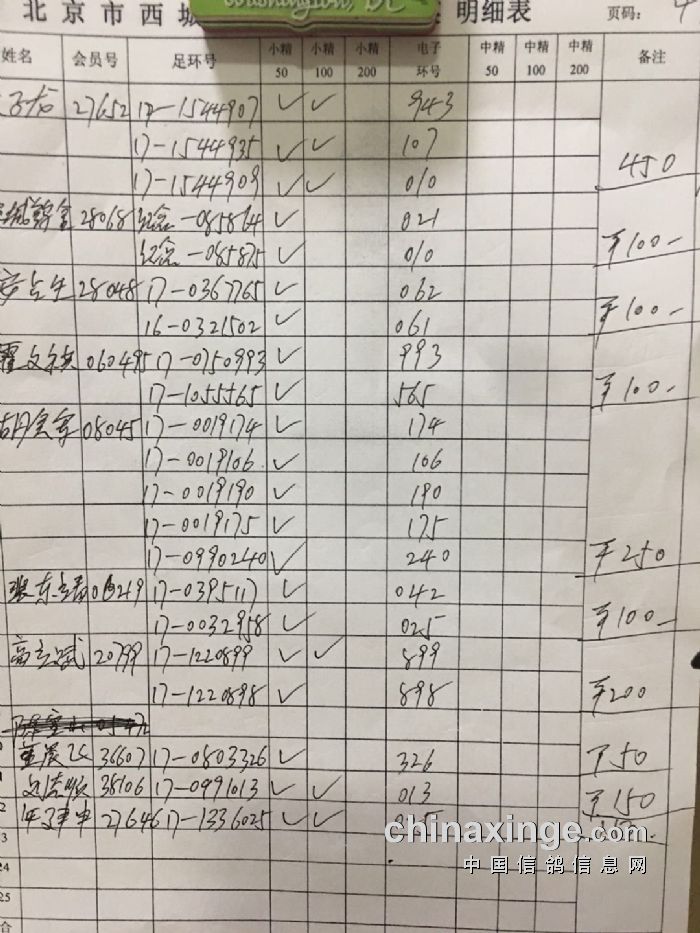 Washington, DC
北京市西城 明细表 页码: 4
姓名 会员号 足环号 小精50 小精100 小精200 电子环号 中精50 中精100 中精200 备注
27652 17-1544907 ✓ ✓ 943
17-1544935 ✓ ✓ 107
17-1544909 ✓ ✓ 010 450
28068 纪念-085814 ✓ 021
纪念-085875 ✓ 010 ¥100-
28048 17-0367765 ✓ 062
16-0321502 ✓ 061 ¥100-
060495 17-0750993 ✓ 993
17-1055565 ✓ 565 ¥100-
08045 17-0019174 ✓ 174
17-0019106 ✓ 106
17-0019190 ✓ 190
17-0019175 ✓ 175
17-0990240 ✓ 240 ¥250
17-0395117 ✓ 042
17-0032958 ✓ 025 ¥100-
20799 17-1220899 ✓ ✓ 899
17-1220898 ✓ 898 ¥200
36607 17-0803326 ✓ 326 ¥50
38106 17-0991013 ✓ ✓ 013 ¥150
27646 17-1336025 ✓ ✓
chinaxinge.com
中国信鸽信息网
24
25
合